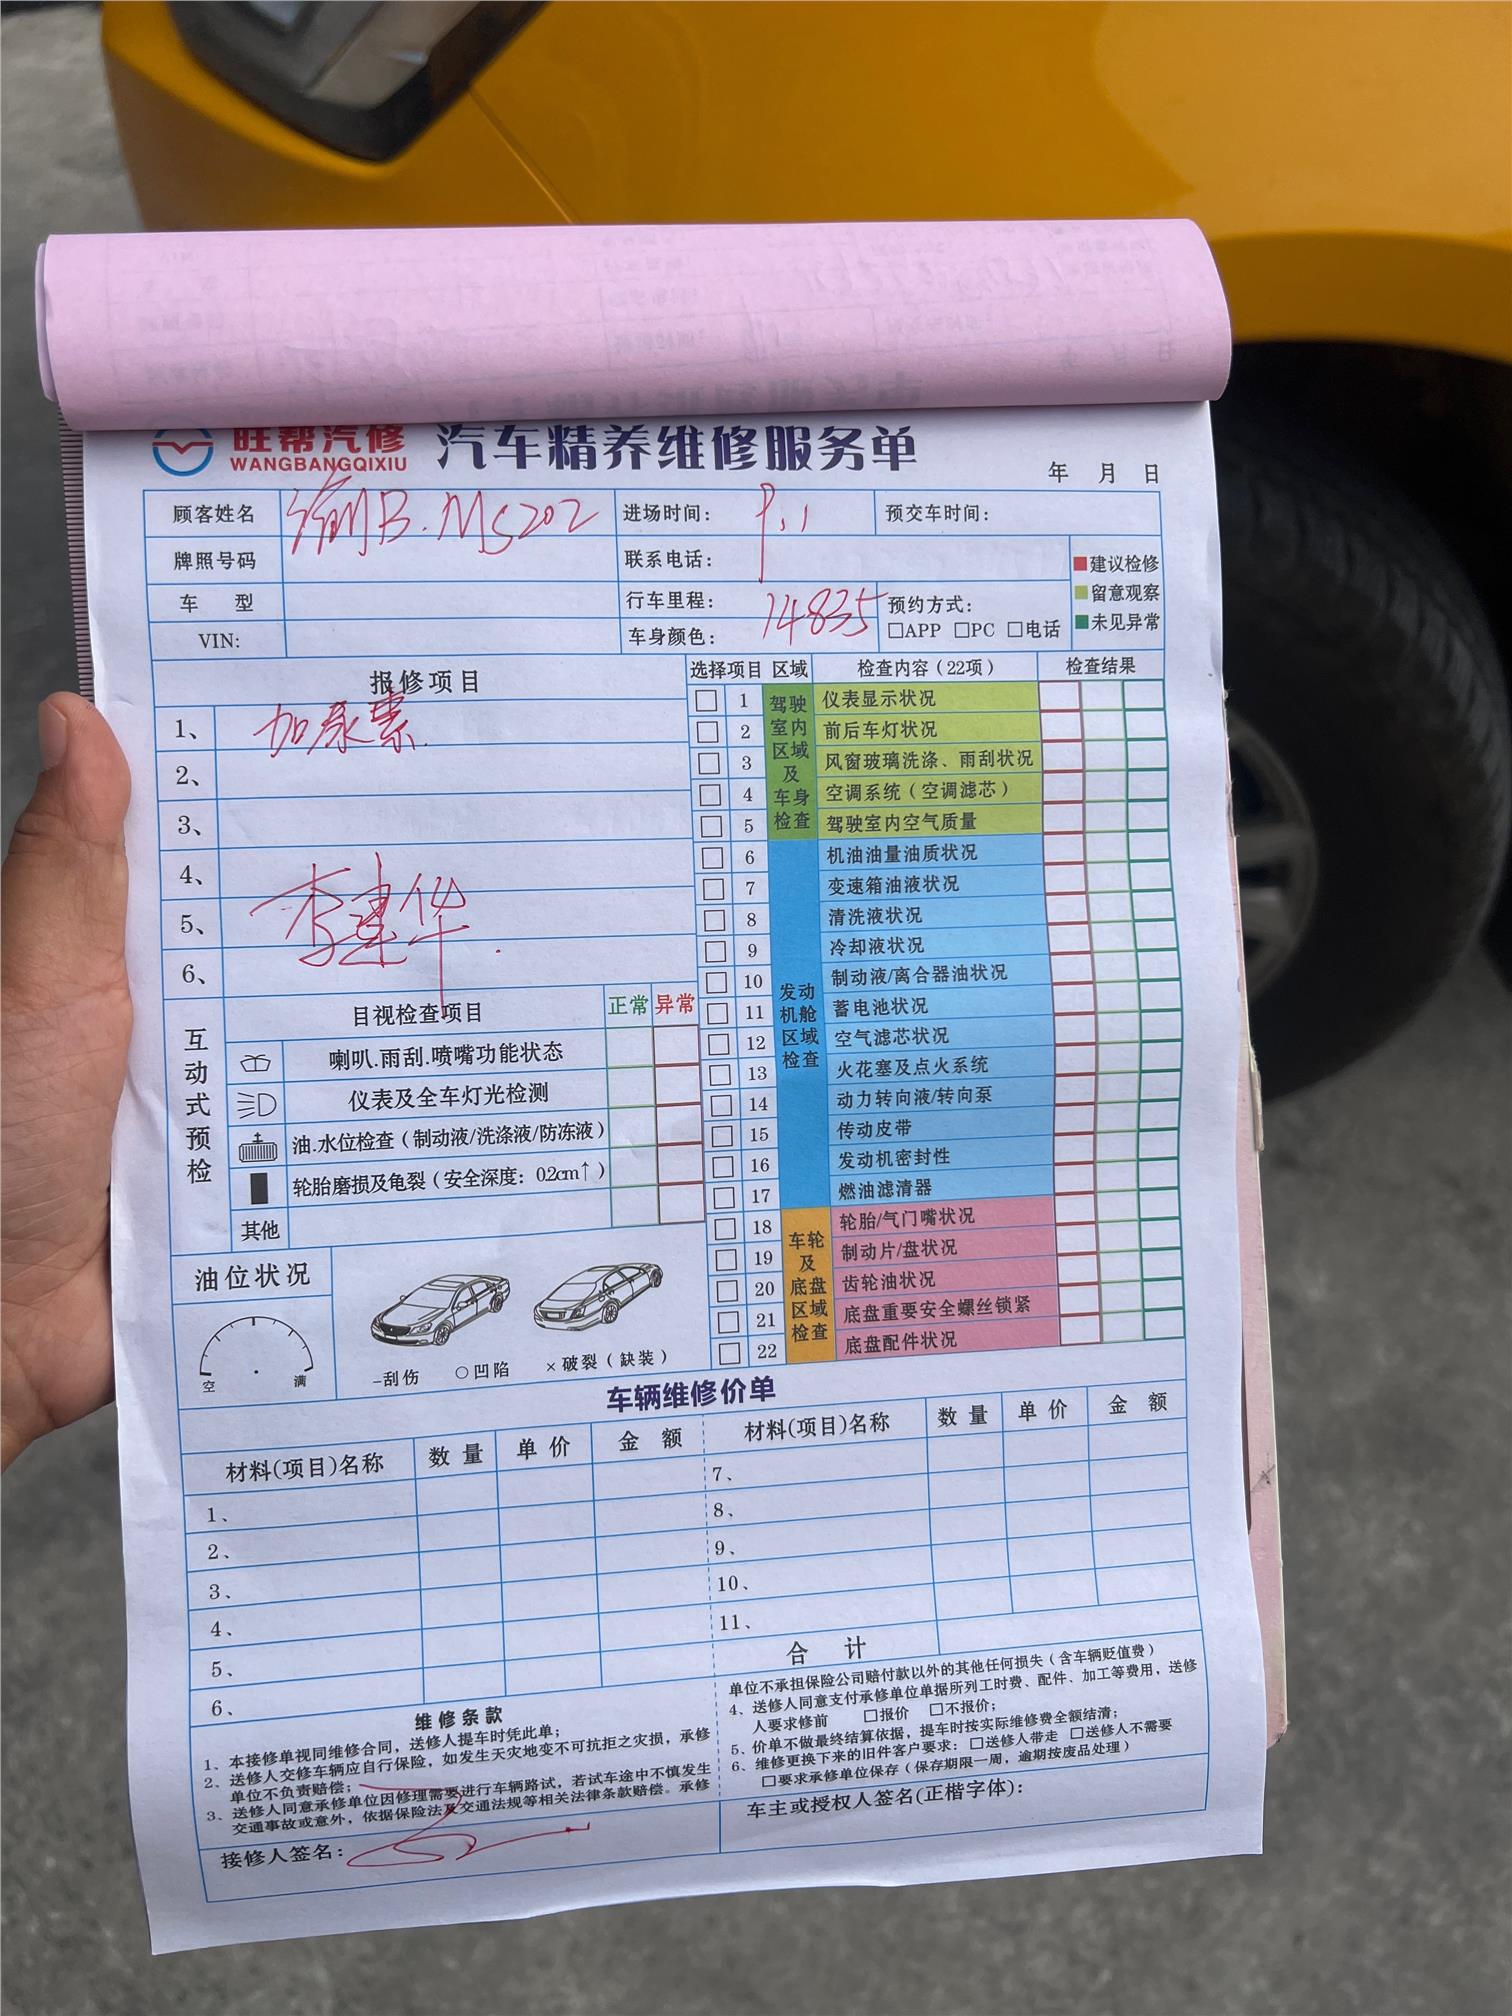 旺帮汽修
WANGBANGQIXIU
汽车精养维修服务单
年 月 日
顾客姓名 渝B.MS202 进场时间: 9.1 预交车时间:
牌照号码 联系电话:
■建议检修
■留意观察
■未见异常
车 型 行车里程: 14835 预约方式:
□APP □PC □电话
VIN: 车身颜色:
报修项目
1、 加尿素
2、
3、
4、
5、 李建华
6、
选择项目 区域 检查内容(22项) 检查结果
驾驶室内区域及车身检查
1 仪表显示状况
2 前后车灯状况
3 风窗玻璃洗涤、雨刮状况
4 空调系统(空调滤芯)
5 驾驶室内空气质量
发动机舱区域检查
6 机油油量油质状况
7 变速箱油液状况
8 清洗液状况
9 冷却液状况
10 制动液/离合器油状况
11 蓄电池状况
12 空气滤芯状况
13 火花塞及点火系统
14 动力转向液/转向泵
15 传动皮带
16 发动机密封性
17 燃油滤清器
车轮及底盘区域检查
18 轮胎/气门嘴状况
19 制动片/盘状况
20 齿轮油状况
21 底盘重要安全螺丝锁紧
22 底盘配件状况
互动式预检
目视检查项目 正常 异常
喇叭.雨刮.喷嘴功能状态
仪表及全车灯光检测
油.水位检查(制动液/洗涤液/防冻液)
轮胎磨损及龟裂(安全深度: 0.2cm↑)
其他
油位状况
空 满
-刮伤 ○凹陷 ×破裂(缺装)
车辆维修价单
材料(项目)名称 数量 单价 金额 材料(项目)名称 数量 单价 金额
1、 7、
2、 8、
3、 9、
4、 10、
5、 11、
6、 合 计
维修条款
1、本接修单视同维修合同,送修人提车时凭此单;
2、送修人交修车辆应自行保险,如发生天灾地变不可抗拒之灾损,承修
单位不负责赔偿;
3、送修人同意承修单位因修理需要进行车辆路试,若试车途中不慎发生
交通事故或意外,依据保险法及交通法规等相关法律条款赔偿。承修
单位不承担保险公司赔付款以外的其他任何损失(含车辆贬值费)
4、送修人同意支付承修单位单据所列工时费、配件、加工等费用,送修
人要求修前 □报价 □不报价;
5、价单不做最终结算依据,提车时按实际维修费全额结清;
6、维修更换下来的旧件客户要求: □送修人带走 □送修人不需要
□要求承修单位保存(保存期限一周,逾期按废品处理)
接修人签名:
车主或授权人签名(正楷字体):